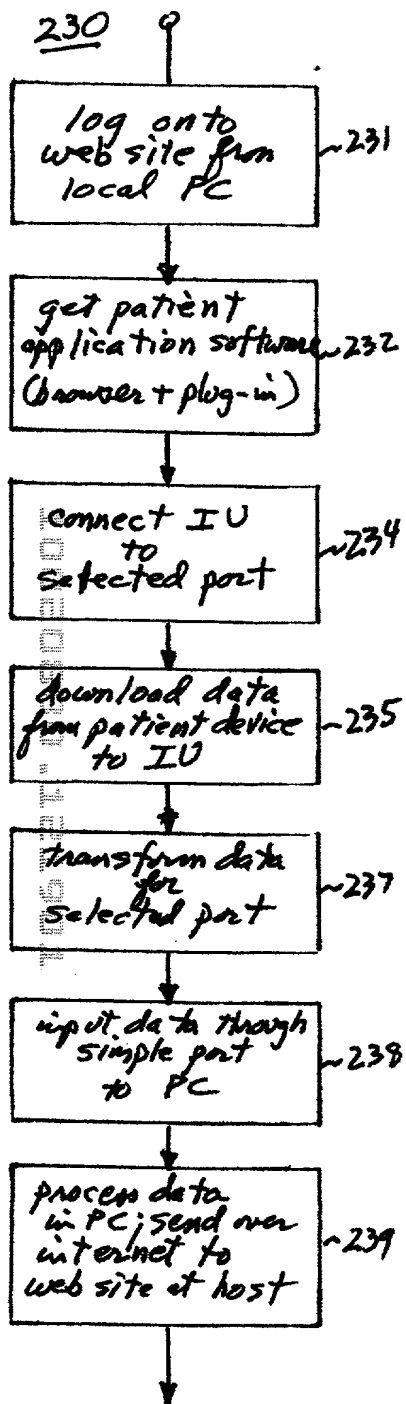 230
log onto
web site from
local PC
231
get patient
application software
(browser + plug-in)
232
connect IU
to
selected port
234
download data
from patient device
to IU
235
transform data
for
selected port
237
input data through
simple port
to PC
238
process data
in PC; send over
internet to
web site at host
239